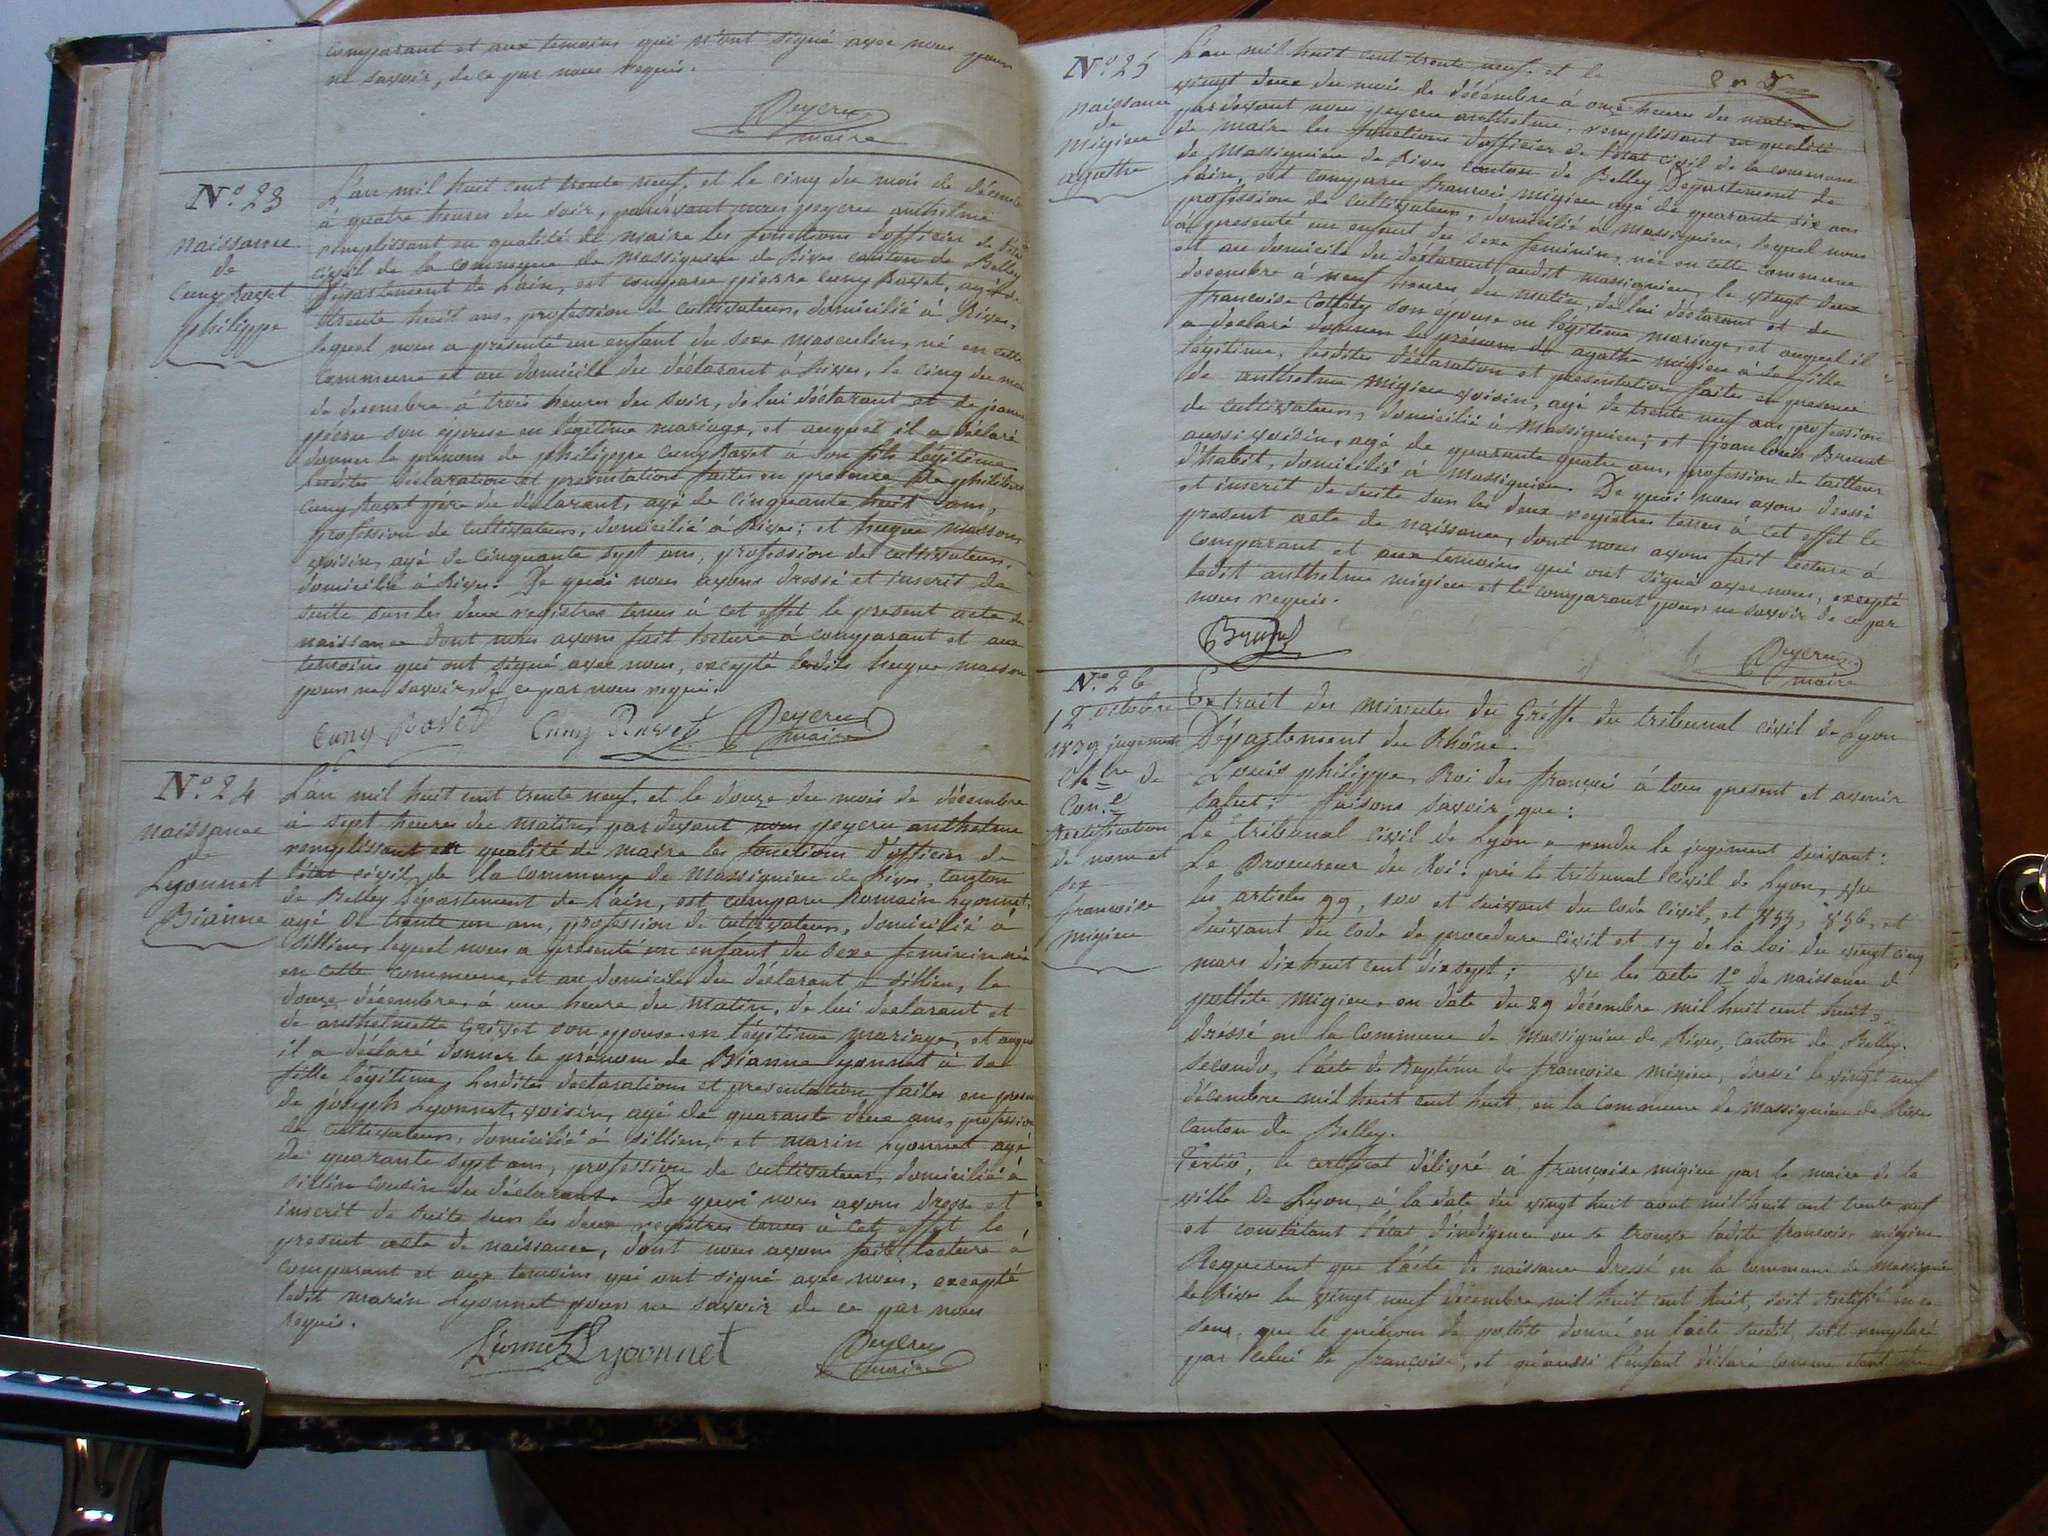 comparant et aux temoins qui n'ont signé avec nous pour
ne savoir, de ce par nous requis.
Peycru
maire
N.º 23
naissance
de
Cuny Ravet
philippe
L'an mil huit cent trente neuf, et le cinq du mois de décembre
à quatre heures du soir, pardevant nous peycru anthelme
remplissant en qualité de maire les fonctions d'officier de l'état
civil de la commune de Massignieu de Rives canton de Belley
Département de l'ain, est comparu pierre Cuny Ravet, agé de
trente huit ans, profession de cultivateur, domicilié à Rives,
lequel nous a presenté un enfant du sexe masculin, né en cette
commune et au domicile du déclarant à Rives, le cinq du mois
de decembre à trois heures du soir, de lui déclarant et de jeanne
son epouse en légitime mariage, et auquel il a déclaré
donner le prénom de philippe Cuny Ravet à son fils légitime
lesdites déclaration et presentation faites en presence de philibert
Cuny Ravet père du déclarant, agé de cinquante huit ans,
profession de cultivateur, domicilié à Rives; et hugue masson,
voisin, agé de cinquante sept ans, profession de cultivateur,
domicilié à Rives. De quoi nous avons dressé et inscrit de
suite sur les deux registres tenus à cet effet le present acte de
naissance dont nous avons fait lecture à comparant et aux
temoins qui ont signé avec nous, excepté ledit hugue masson
pour ne savoir, de ce par nous requis.
Cuny Ravet Cuny Ravet Peycru
maire
N.º 24
naissance
de
Lyonnet
Bianne
L'an mil huit cent trente neuf, et le douze du mois de décembre
à sept heures du matin, pardevant nous peycru anthelme
remplissant en qualité de maire les fonctions d'officier de
l'état civil, de la commune de Massignieu de Rives, canton
de Belley Département de l'ain, est comparu Romain Lyonnet,
agé de trente un ans, profession de cultivateur, domicilié à
Sillieu, lequel nous a présenté un enfant du sexe feminin née
en cette commune, et au domicile du déclarant à Sillieu, le
douze décembre, à une heure du matin, de lui declarant et
de anthelmette Grisot son epouse en légitime mariage, et auquel
il a déclaré donner le prénom de Bianne Lyonnet à sa
fille légitime, lesdites declarations et presentation faites en presence
de joseph Lyonnet, voisin, agé de quarante deux ans, profession
de cultivateur, domicilié à Sillieu, et marin Lyonnet agé
de quarante sept ans, profession de cultivateur, domicilié à
Sillieu cousin du déclarant. De quoi nous avons dresse et
inscrit de suite sur les deux registres tenus à cet effet le
present acte de naissance, dont nous avons fait lecture à
comparant et aux temoins qui ont signé avec nous, excepté
ledit marin Lyonnet pour ne savoir de ce par nous
requis.
Lionnet Lyonnet Peycru
maire
N.º 25
naissance
de
migieu
agathe
L'an mil huit cent trente neuf, et le
vingt deux du mois de décembre à onze heures du matin
pardevant nous peycru anthelme, remplissant en qualité
de maire les fonctions d'officier de l'état civil de la commune
de Massignieu de Rives canton de Belley Département de
l'ain, est comparu françois migieu agé de quarante six ans
profession de cultivateur, domicilié à Massignieu, lequel nous
a presenté un enfant du sexe feminin, née en cette commune
et au domicile du déclarant audit massignieu, le vingt deux
decembre à neuf heures du matin, de lui déclarant et de
françoise Collety son épouse en légitime mariage, et auquel il
a déclaré donner le prénom de agathe migieu à sa fille
légitime, lesdites déclaration et presentation faites en presence
de anthelme migieu voisin, agé de trente neuf ans profession
de cultivateur, domicilié à Massignieu, et jean louis Brunet
aussi voisin, agé de quarante quatre ans, profession de tailleur
d'habit, domicilié à Massignieu. De quoi nous avons dressé
et inscrit de suite sur les deux registres tenus à cet effet le
present acte de naissance, dont nous avons fait lecture à
comparant et aux temoins qui ont signé avec nous, excepté
ledit anthelme migieu et le comparant pour ne savoir de ce par
nous requis.
Brunet Peycru
maire
N.º 26
12 octobre
1839 jugement
Ch.bre de
Con.e
Rectification
de nom et
sex
francoise
migieu
Extrait des minutes du Greffe du tribunal civil de Lyon
Département du Rhône.
Louis philippe, Roi des français à tous present et avenir
salut; faisons savoir que:
Le tribunal civil de Lyon a rendu le jugement suivant:
Le Procureur du Roi: près le tribunal civil de Lyon, Vu
les articles 99, 100 et suivant du code civil, et 855, 856, et
suivant du code de procedure civil et 17 de la loi du vingt cinq
mars dix huit cent dix sept; Vu les actes 1º de naissance de
pothite migieu, en date du 29 décembre mil huit cent huit,
dréssé en la commune de Massignieu de Rives, canton de Belley.
Secondo, l'acte de Baptême de françoise migieu, dressé le vingt neuf
décembre mil huit cent huit, en la commune de Massignieu de Rives
canton de Belley.
Tertio, le certificat délivré à françoise migieu par le maire de la
ville de Lyon, à la date du vingt huit aout mil huit cent trente neuf
et constatant l'état d'indigence ou se trouve ladite françoise migieu
Requerent que l'acte de naissance dressé en la commune de massignieu
de Rives le vingt neuf décembre mil huit cent huit, soit rectifié en ce
sens, que le prénom de pothite donné en l'acte susdit, soit remplacé
par celui de françoise, et qu'aussi l'enfant déclaré comme étant